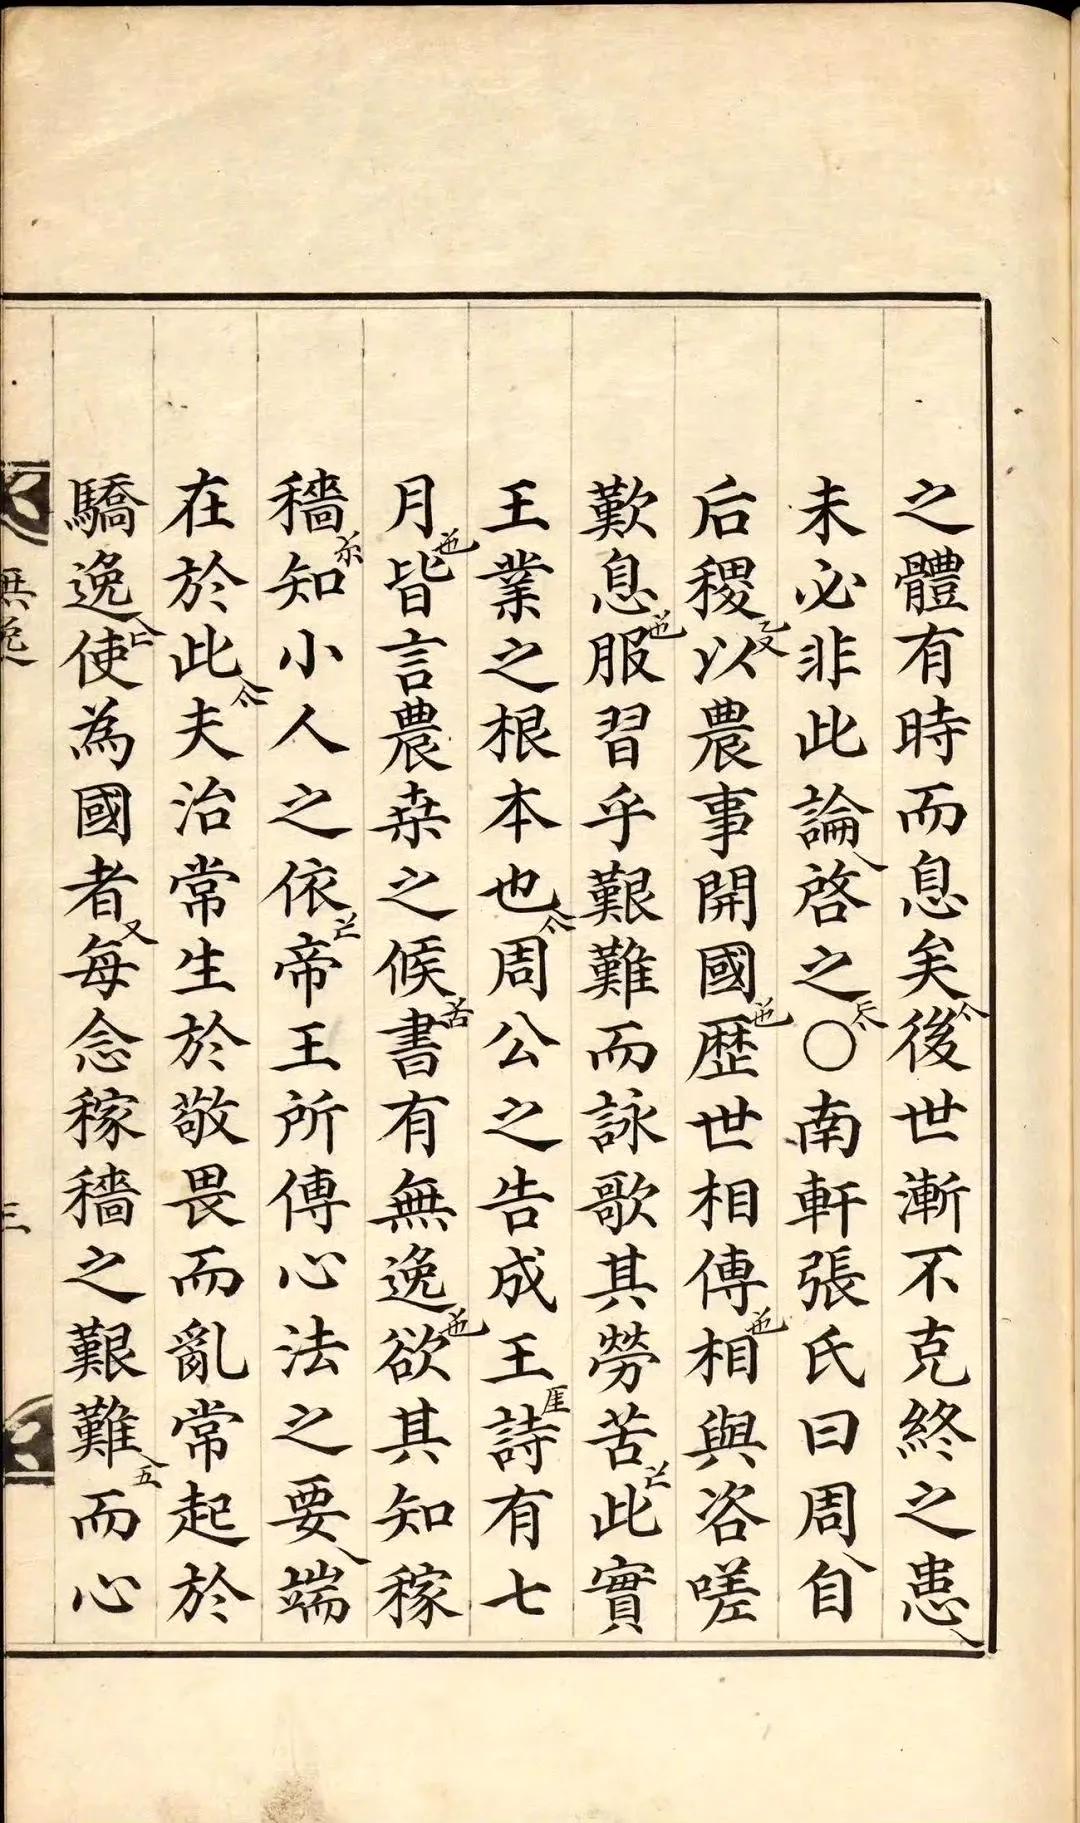 之體有時而息矣後世漸不克終之患
未必非此論啓之○南軒張氏曰周自
后稷以農事開國歴世相傳相與咨嗟
歎息服習乎艱難而詠歌其勞苦此實
王業之根本也周公之告成王詩有七
月皆言農桒之候書有無逸欲其知稼
穡知小人之依帝王所傳心法之要端
在於此夫治常生於敬畏而亂常起於
驕逸使為國者每念稼穡之艱難而心
無逸
三